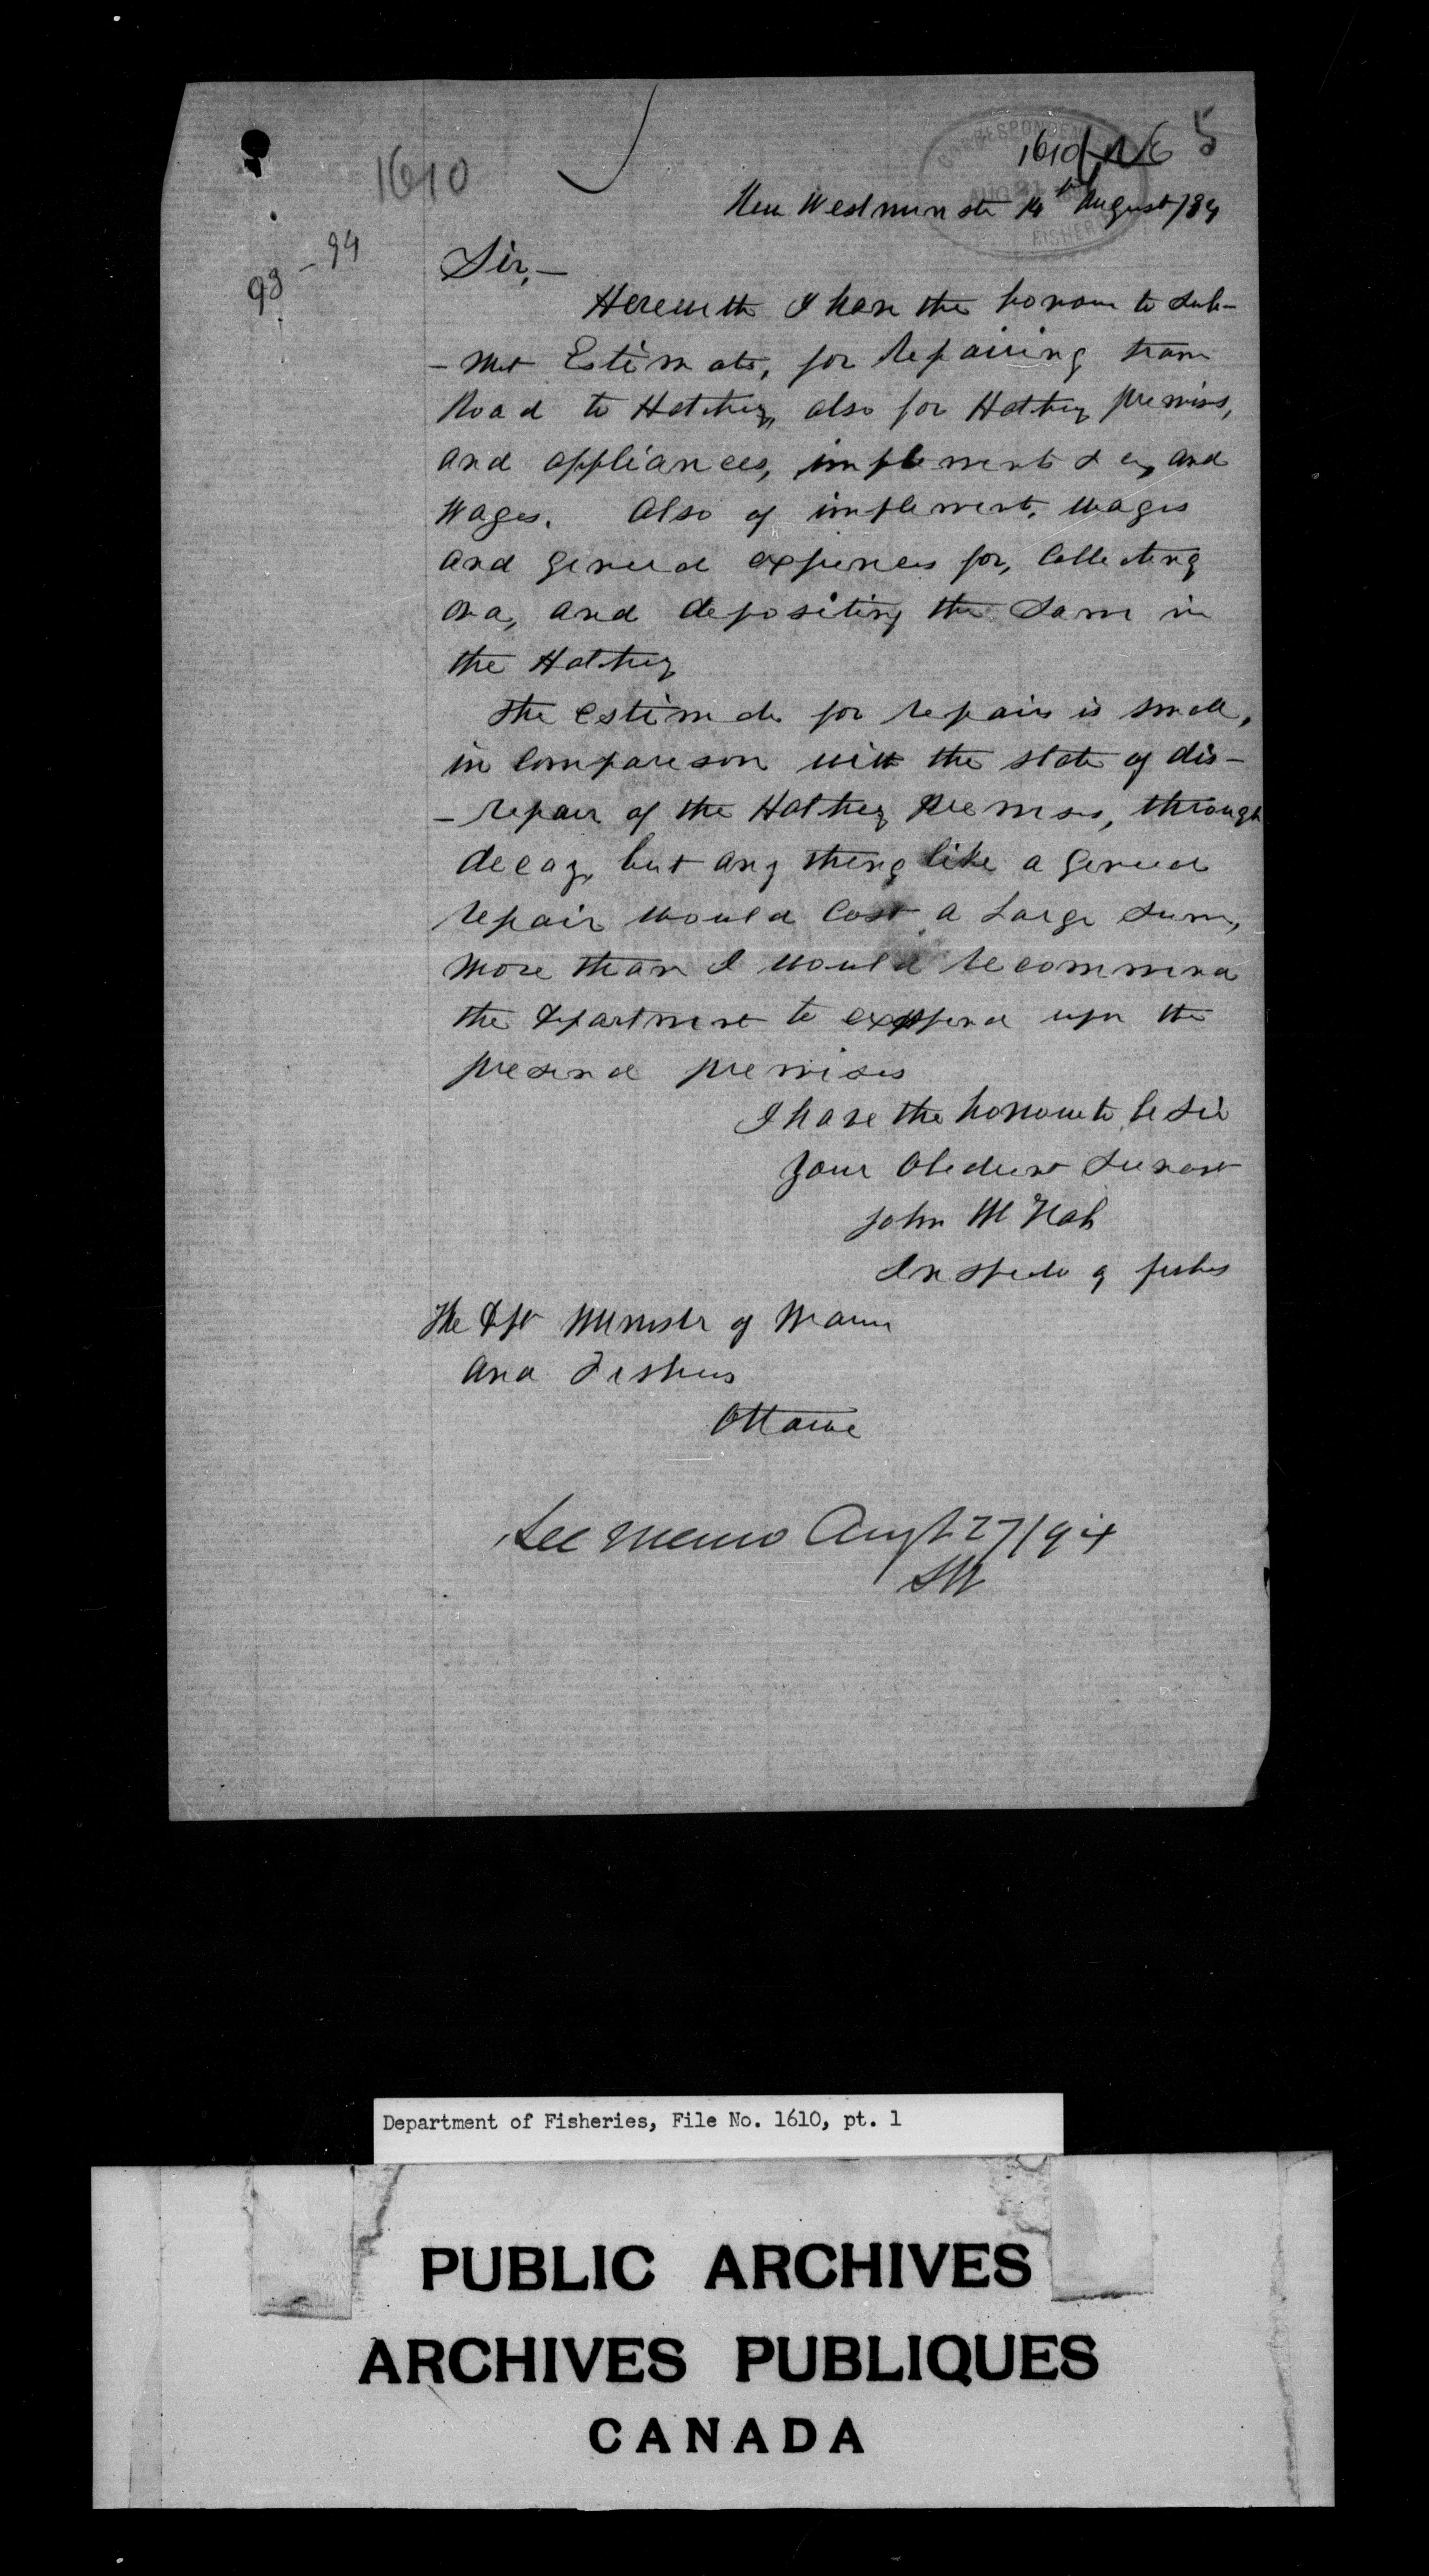 1610
1610
5
CORRESPONDENCE
AUG 21
FISHERIES
New Westminster 14th August /94
93-94
Sir,—
Herewith I have the honour to sub-
-mit Estimate, for repairing tram
Road to Hatchery, also for Hatchery premises,
and appliances, implements &c, and
wages. Also of implements, wages
and general expences for, Collecting
ova, and depositing the same in
the Hatchery
The estimate for repairs is small,
in Compareson with the state of dis-
-repair of the Hatchery premises, through
decay, but any thing like a general
repair would Cost a large sum,
more than I would recommend
the Department to expend upon the
present premises
I have the honour to be Sir
your Obedient Servant
John McNab
Inspector of fisheries
The Dpt Minister of Marine
and Fisheries
Ottawa
See memo Augt 27/94
Department of Fisheries, File No. 1610, pt. 1
PUBLIC ARCHIVES
ARCHIVES PUBLIQUES
CANADA